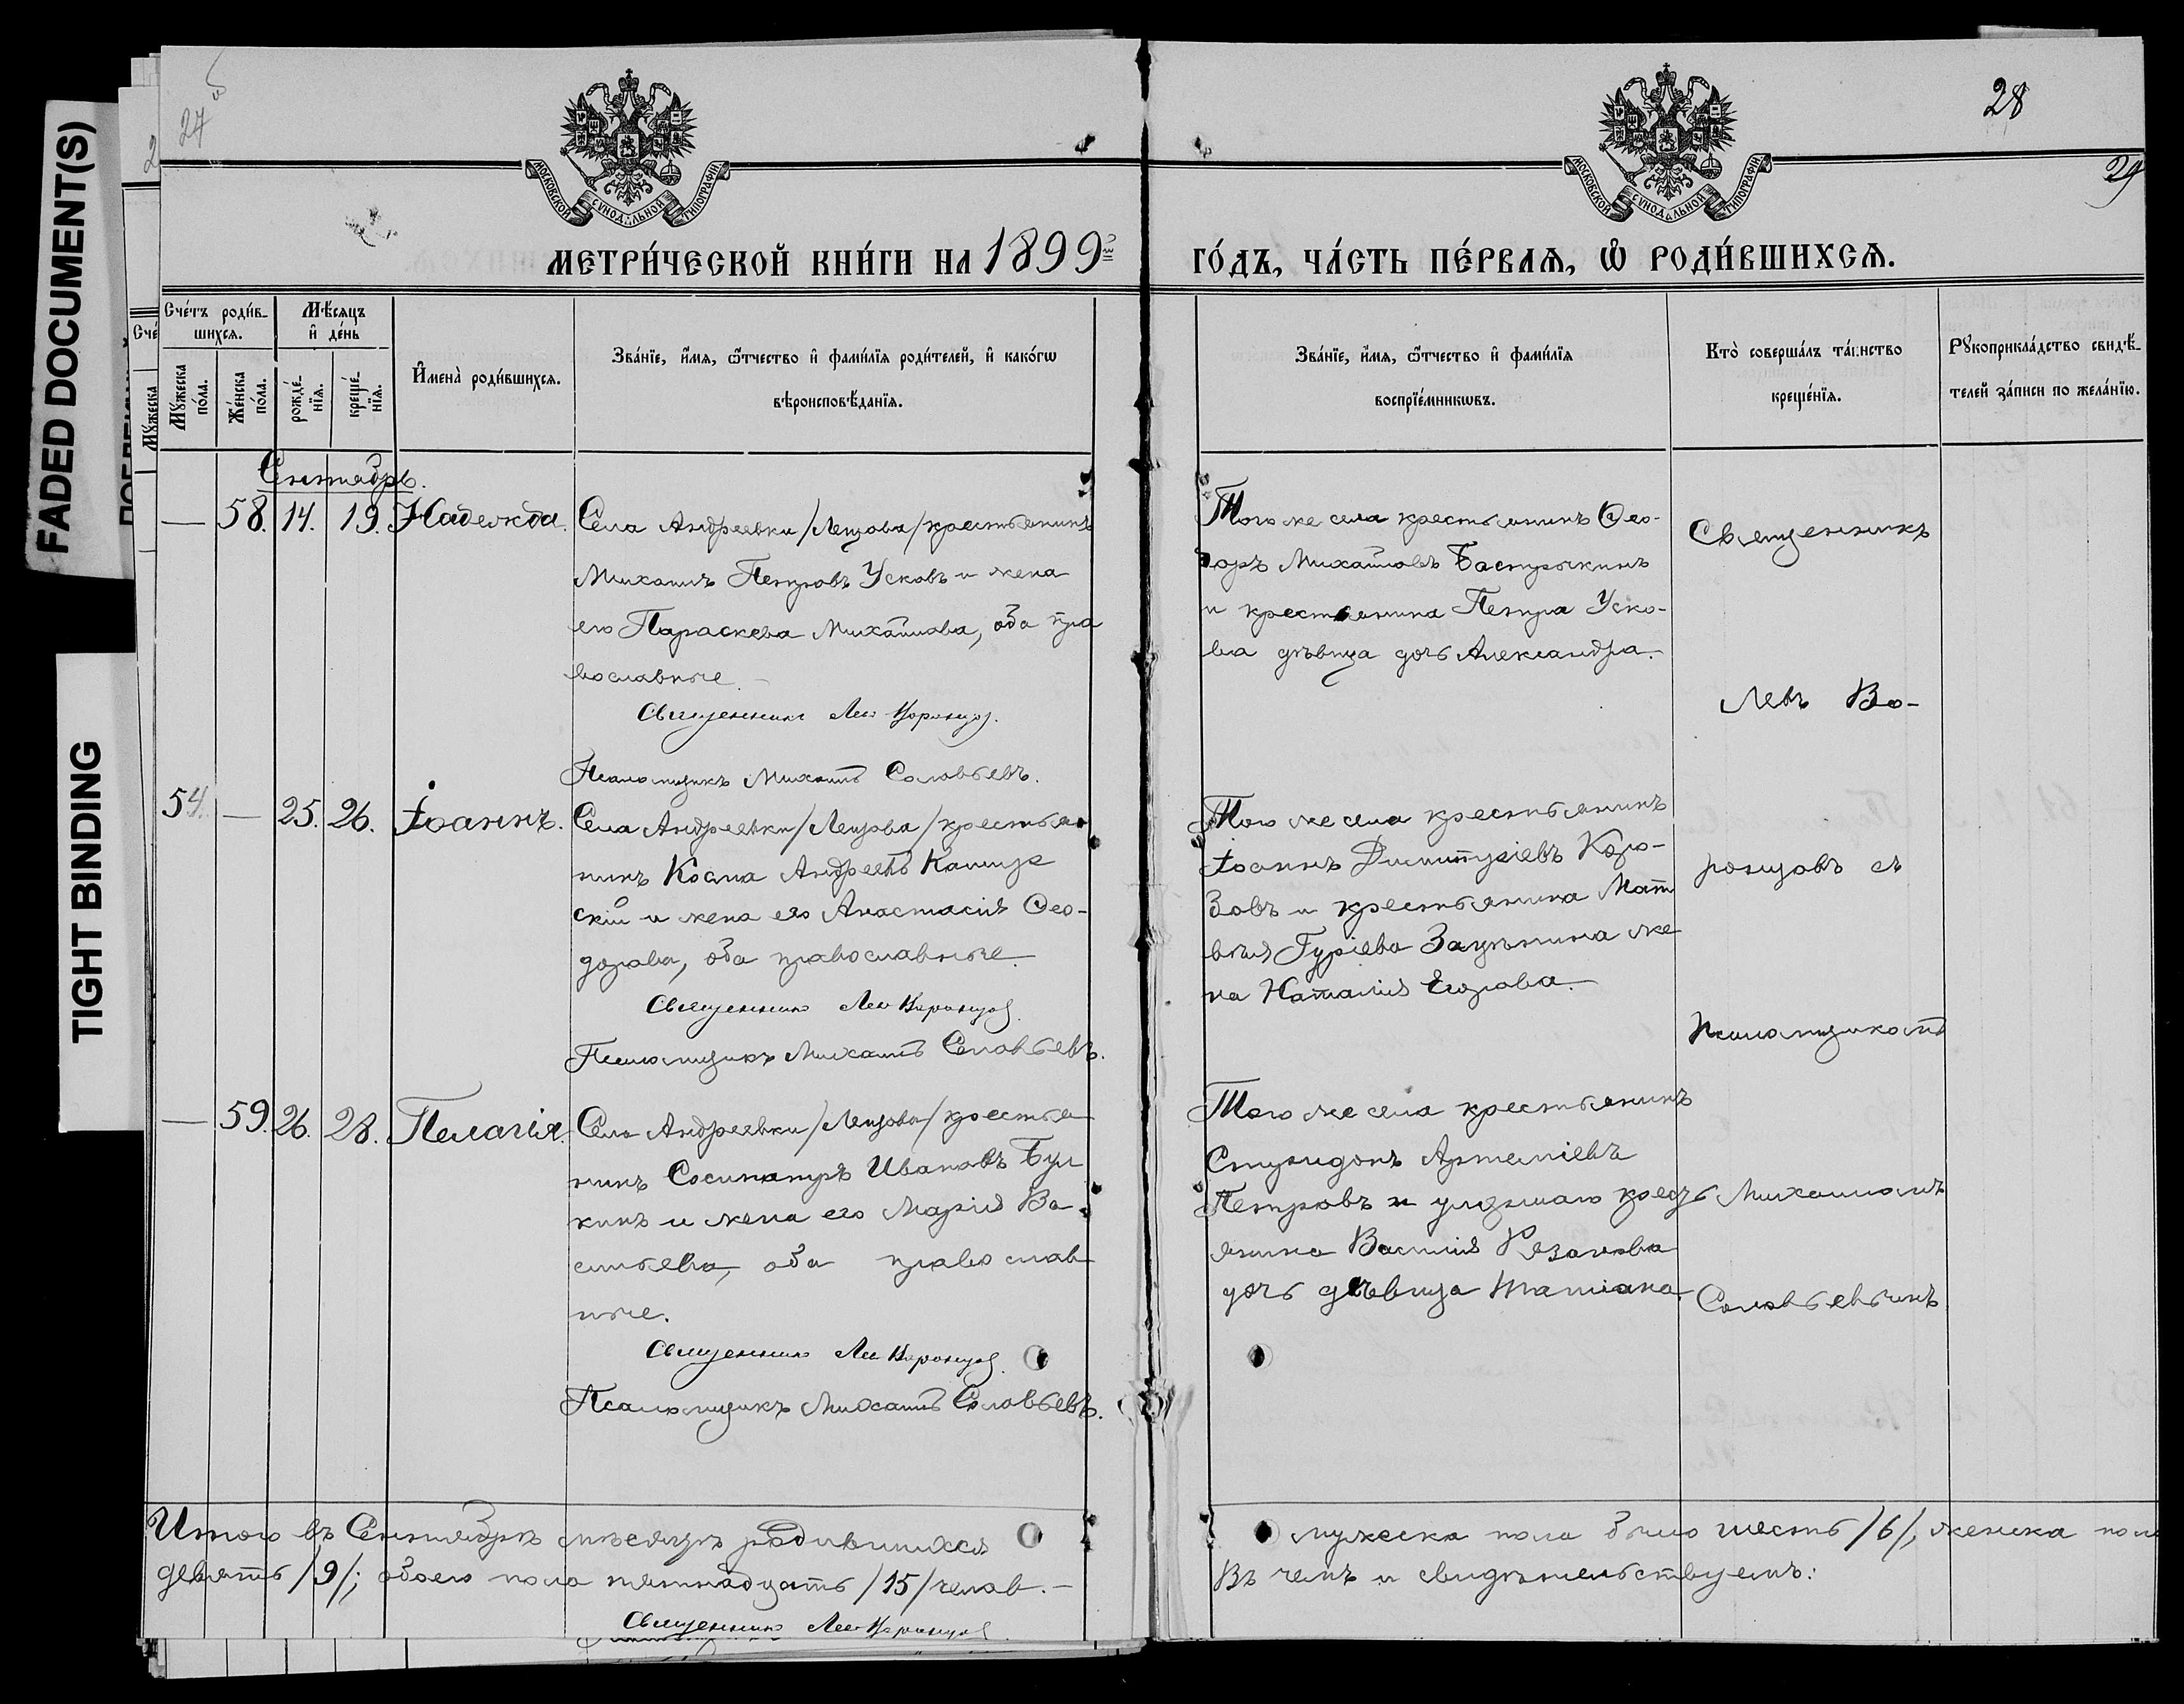 FADED DOCUMENT(S)
TIGHT BINDING
27
28
29
МОСКОВСКОЙ СѴНОДАЛЬНОЙ ТИПОГРАФІИ
МОСКОВСКОЙ СѴНОДАЛЬНОЙ ТИПОГРАФІИ
МЕТРИ́ЧЕСКОЙ КНИ́ГИ НА 1899й
ГО́ДЪ, ЧА́СТЬ ПЕ́РВАѦ, Ѡ РОДИ́ВШИХСѦ.
Сче́тъ роди́в-
шихсѧ.
Мѣ́сѧцъ
и҆ де́нь
Мꙋ́жеска
по́ла.
Же́нска
по́ла.
рожде́-
нїѧ.
креще́-
нїѧ.
И҆мена̀ роди́вшихсѧ.
Зва́нїе, и҆́мѧ, ѻ҆́тчество и҆ фами́лїѧ роди́телей, и҆ како́гѡ
вѣроисповѣ́данїѧ.
Зва́нїе, и҆́мѧ, ѻ҆́тчество и҆ фами́лїѧ
воспрїе́мникѡвъ.
Кто̀ соверша́лъ та́инство
креще́нїѧ.
Рꙋкоприкла́дство свидѣ́-
телей за́писи по жела́нїю.
Сентябрь.
— 58. 14. 19. Надежда.
Села Андреевки /Лещова/ крестьянинъ
Михаилъ Петровъ Усковъ и жена
его Параскева Михайлова, оба пра
вославные.
Священникъ Лев Воронцов.
Псаломщикъ Михаилъ Соловьевъ.
Того же села крестьянинъ Ѳео-
доръ Михайловъ Бастрыкинъ
и крестьянина Петра Уско-
ва дѣвица дочь Александра.
54. — 25. 26. Іоаннъ.
Села Андреевки /Лещова/ крестья
нинъ Косма Андреевъ
скій и жена его Анастасія Ѳео-
дорова, оба православные.
Священникъ Лев Воронцов.
Псаломщикъ Михаилъ Соловьевъ.
Того же села крестьянинъ
Іоаннъ Димитріевъ Коро-
зовъ и крестьянина Мат
вѣя Гуріева же
на Наталія Егорова.
— 59. 26. 28. Пелагія.
Села Андреевки /Лещова/ крестья
нинъ Сосипатръ Ивановъ Бул
кинъ и жена его Марія Ва-
сильева, оба православ
ные.
Священникъ Лев Воронцов.
Псаломщикъ Михаилъ Соловьевъ.
Того же села крестьянинъ
Спиридонъ Артеміевъ
Петровъ и умершаго крест
янина Василія Рязанова
дочь дѣвица Татіана.
Священникъ
Левъ Во-
ронцовъ съ
Псаломщикомъ
Михаиломъ
Соловьевымъ
Итого въ Сентябрѣ мѣсяцѣ родившихся
мужеска пола было шесть /6/, женска пола
девять /9/; обоего пола пятнадцать /15/ челов.—
Въ чемъ и свидѣтельствуемъ:
Священникъ Лев Воронцов